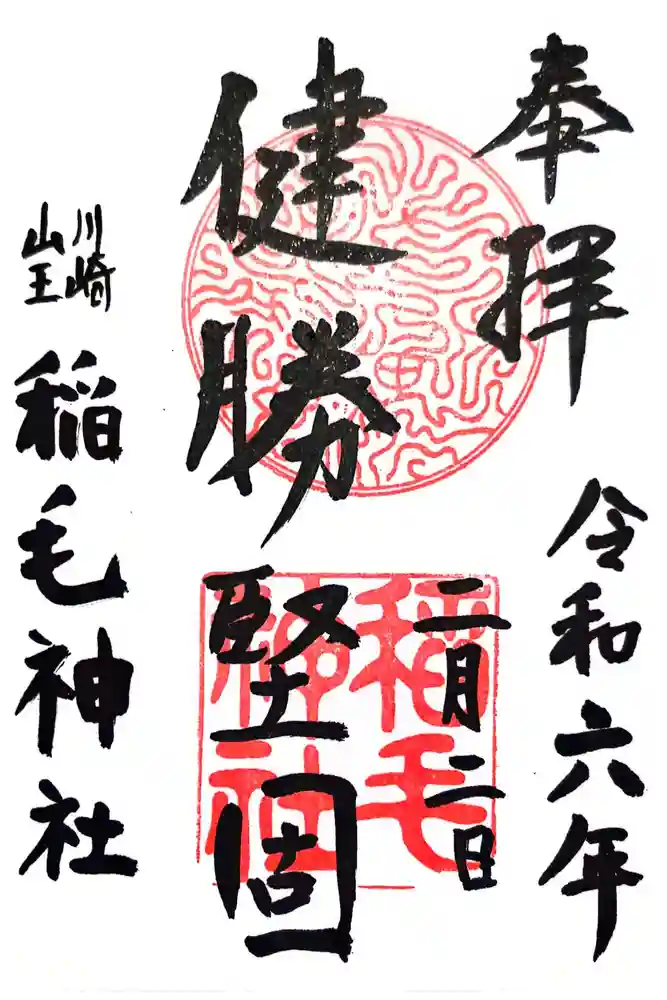 奉拝
令和六年
二月二日
健勝
堅固
川崎
山王
稲毛神社
稲毛
神社